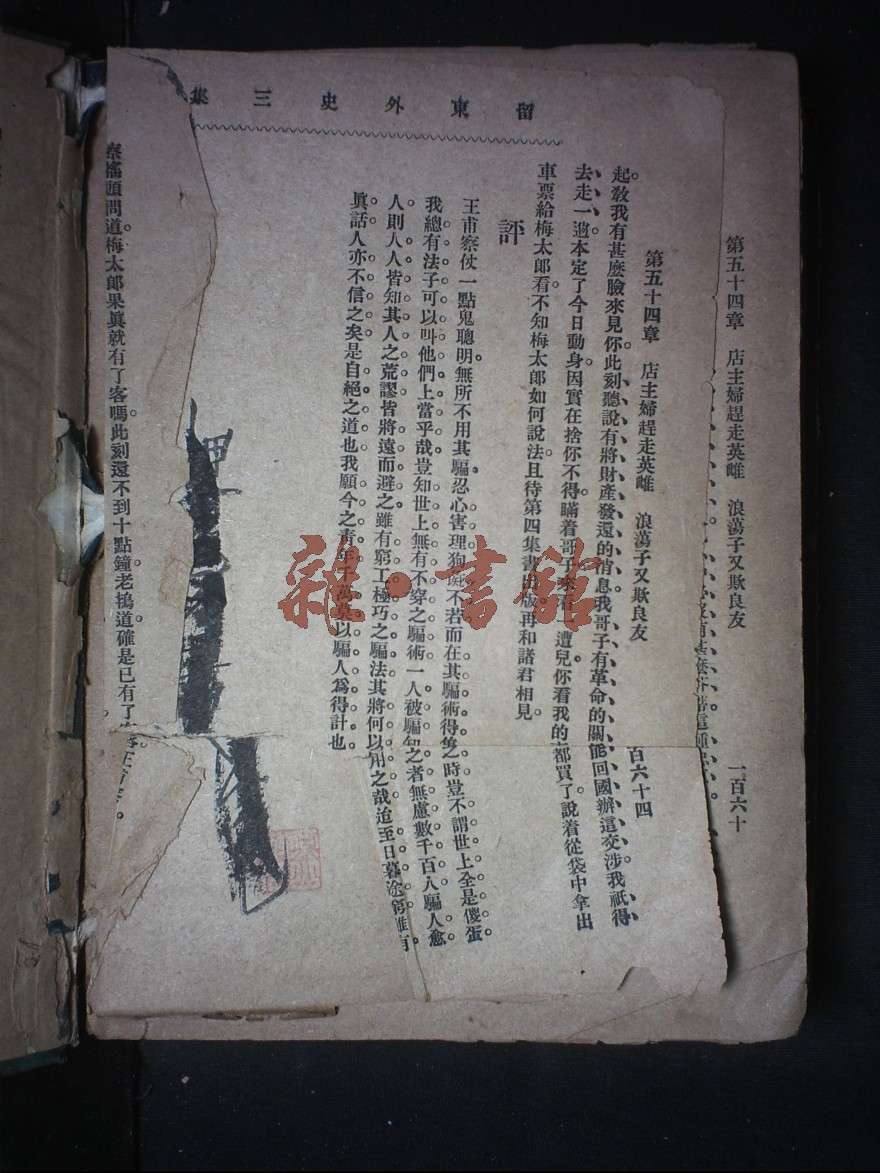 留東外史三集
第五十四章 店主婦趕走英雄 浪蕩子又欺良友
一百六十
第五十四章 店主婦趕走英雄 浪蕩子又欺良友
百六十四
起教我有甚麽臉來見你此刻聽說有將財產發還的消息我哥子有革命的關能回國辦這交涉我祇得
去走一遒本定了今日動身因實在捨你不得瞞着哥子來看一遭兒你看我的都買了說着從袋中拿出
車票給梅太郞看不知梅太郞如何說法且待第四集書出版再和諸君相見。
評
王甫察仗一點鬼聰明無所不用其騙忍心害理狗彘不若而在其騙術得售之時豈不謂世上全是傻蛋
我總有法子可以叫他們上當乎哉豈知世上無有不穿之騙術一人被騙知之者無慮數千百人騙人愈
人則人人皆知其人之荒謬皆將遠而避之雖有窮工極巧之騙法其將何以用之哉迨至日暮途窮雖有
眞話人亦不信之矣是自絕之道也我願今之靑年千萬莫以騙人爲得計也
察搖頭問道梅太郞果眞就有了客嗎此刻還不到十點鐘老鴇道確是已有了
雜·書館